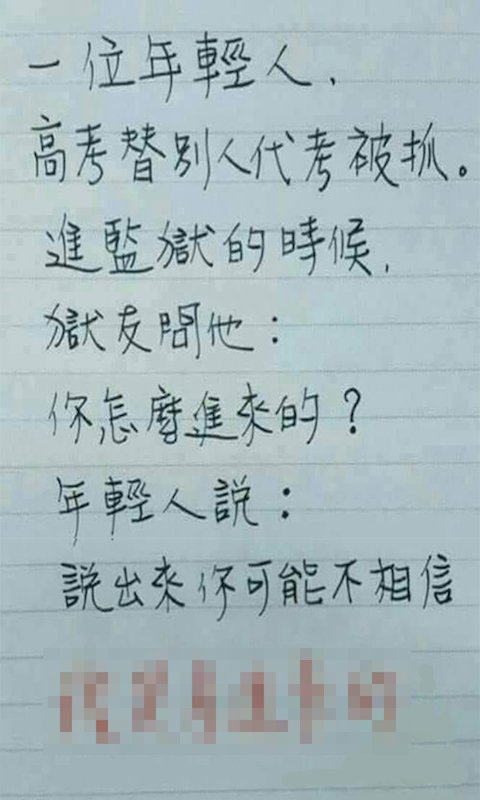 一位年輕人,
高考替別人代考被抓。
進監獄的時候,
獄友問他：
你怎麼進來的？
年輕人說：
說出來你可能不相信